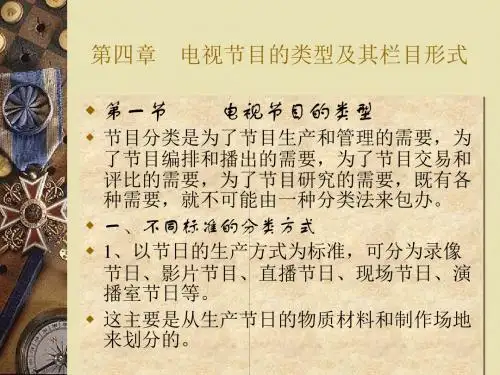 第四章　电视节目的类型及其栏目形式
第一节　　电视节目的类型
节目分类是为了节目生产和管理的需要，为
了节目编排和播出的需要，为了节目交易和
评比的需要，为了节目研究的需要，既有各
种需要，就不可能由一种分类法来包办。
一、不同标准的分类方式
1、以节目的生产方式为标准，可分为录像
节目、影片节目、直播节目、现场节目、演
播室节目等。
这主要是从生产节目的物质材料和制作场地
来划分的。